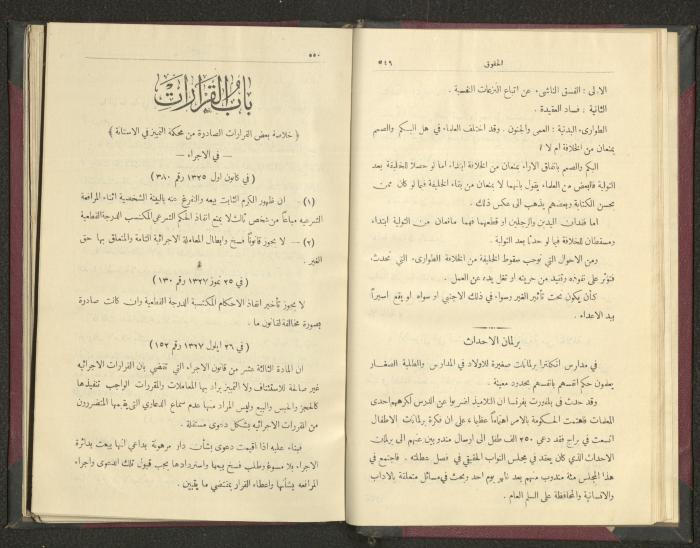 الحقوق ٥٤٩
الاولى : الفسق الناشىء عن اتباع النزعات النفسية .
الثانية : فساد العقيدة .
الطوارىء البدنية : العمى والجنون . وقد اختلف العلماء في هل البكم والصمم
يمنعان من الخلافة ام لا ؟
البكم والصمم باتفاق الاراء يمنعان من الخلافة ابتداء اما لو حصلا للخليفة بعد
التولية فالبعض من العلماء يقول بانهما لا يمنعان من بقاء الخليفة فيما لو كان ممن
يحسن الكتابة وبعضهم يذهب الى عكس ذلك .
اما فقدان اليدين والرجلين او قطعهما فهما مانعان من التولية ابتداء
ومسقطان للخلافة فيما لو حدثا بعد التولية .
ومن الاحوال التي توجب سقوط الخليفة من الخلافة الطوارىء التي تحدث
فتؤثر على نفوذه وتقيد من حريته او تغل يده عن العمل .
كأن يكون تحت تأثير الغير وسواء في ذلك الاجنبي او سواه او يقع اسيراً
بيد الاعداء .
برلمان الاحداث
في مدارس انكلترا برلمانات صغيرة للاولاد في المدارس والطلبة الصغار
يعلمون حكم انفسهم بانفسهم بحدود معينة .
وقد حدث في بلدورت بفرنسا ان التلاميذ اضربوا عن الدرس لكرههم احدى
المعلمات فاهتمت الحكومة بالامر اهتماماً عظيماً ، على ان فكرة برلمانات الاطفال
اتسعت في براج فقد دعي ٢٥٠ الف طفل الى ارسال مندوبين عنهم الى برلمان
الاحداث الذي كان يعقد في مجلس النواب الحقيقي في فصل عطلته . فاجتمع في
هذا المجلس مئة مندوب منهم بعد ظهر يوم احد وبحث في مسائل متعلقة بالآداب
والانسانية والمحافظة على السلم العام .
٥٥٠
باب القرارات
﴿ خلاصة بعض القرارات الصادرة من محكمة التمييز في الاستانة ﴾
— في الاجراء —
( في كانون اول ١٣٢٥ رقم ٣٨٠ )
(١) — ان ظهور الكرم الثابت بيعه والتفرغ عنه بالبينة الشخصية اثناء المرافعة
الشرعيه مباعاً من شخص ثالث لا يمنع انفاذ الحكم الشرعي المكتسب الدرجة القطعية
(٢) — لا يجوز قانوناً فسخ وابطال المعاملة الاجرائية التامة والمتعلق بها حق
الغير .
( في ٢٥ تموز ١٣٢٧ رقم ١٣٠ )
لا يجوز تأخير انفاذ الاحكام المكتسبة الدرجة القطعية وان كانت صادرة
بصورة مخالفة لقانون ما .
( في ٢٦ ايلول ١٣٢٧ رقم ١٥٢ )
ان المادة الثالثة عشر من قانون الاجراء التي تقتضي بان القرارات الاجرائيه
غير صالحة للاستئناف ولا التمييز يراد بها المعاملات والمقررات الواجب تنفيذها
كالحجز والحبس والبيع وليس المراد منها عدم سماع الدعاوي التي يقيمها المتضررون
من القررات الاجرائيه بشكل دعوى مستقلة .
فبناء عليه اذا اقيمت دعوى بشأن دار مرهونة بداعي انها بيعت بدائرة
الاجراء بلا مسوغ وطلب فسخ بيعها واستردادها يجب قبول تلك الدعوى واجراء
المرافعه بشأنها واعطاء القرار بمقتضي ما يتبين .